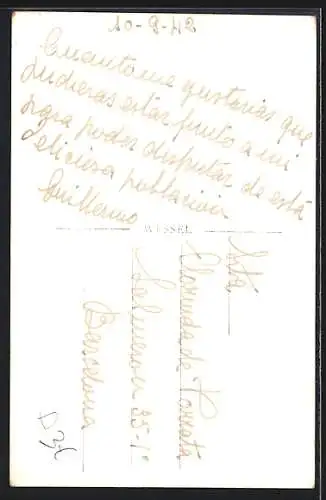 10-9-42
Cuantome gustarias que
pudieras estar junto a mi
para poder disfrutar de está
eliciosa poblacion
Guillermo
MISSEL
Srta
Clorinda de
35-1º
Barcelona